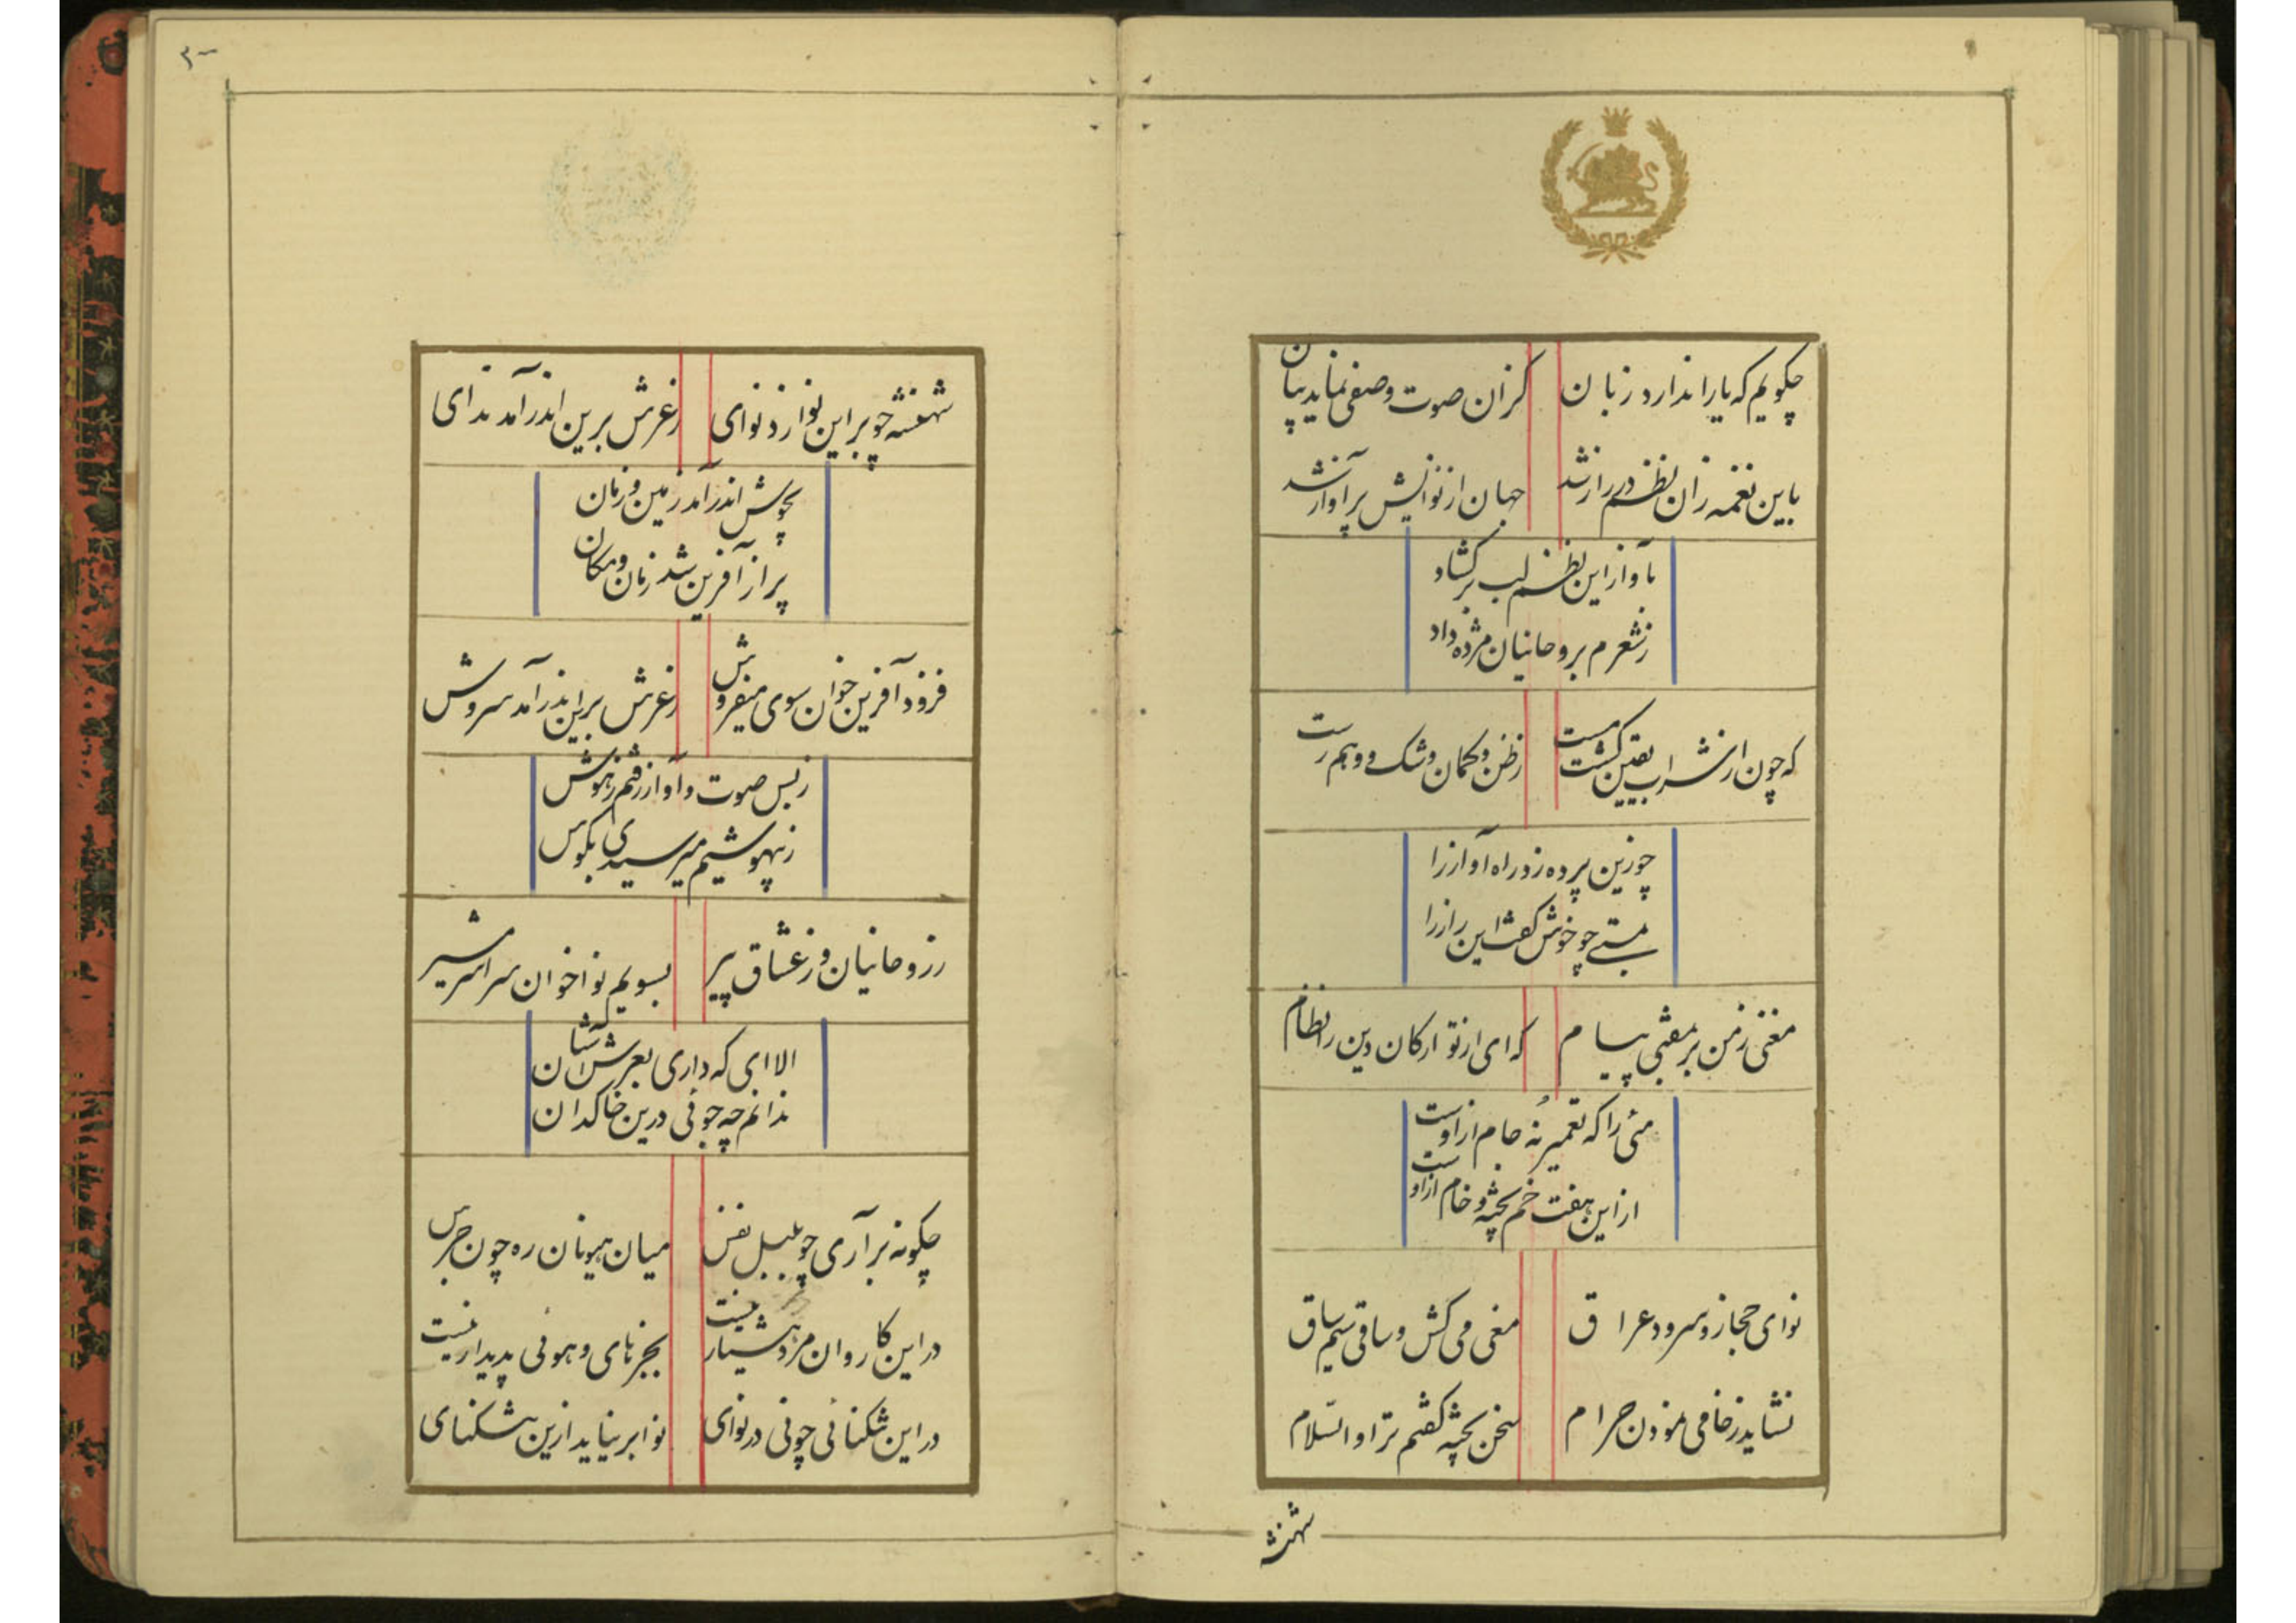 چکویم که یارا ندارد زبان کزان صوت وصفی نماید بیان
باین نغمه زان نظم در راز شد جهان از نوایش پر آواز شد
بآواز این نظم لب برکشاد
ز شعرم بروحانیان مژده داد
که چون از شراب یقین کشت مست ز ظن و کمان و شک و وهم رست
چو زین پرده زد راه آواز را
بمستی چو خوش کفت این راز را
مغنی ز من بر بمفتی پیام که ای از تو ارکان دین را نظام
مئی را که تعمیر نه جام ازوست
از این هفت خم پخته و خام ازوست
نوای حجاز و سرود عراق مغنی می کش و ساقی سیم ساق
نشاید ز خامی نمودن حرام سخن پخته کفتم ترا والسّلام
شهنشه
۳۰
شهنشه چو بر این نوا زد نوای ز عرش برین اندر آمد ندای
بجوش اندر آمد زمین و زمان
پر از آفرین شد زمان و مکان
فرزد آفرین خوان سوی میفروش ز عرش برین اندر آمد سروش
ز بس صوت و آواز رفتم ز هوش
ز بیهوشیم میرسیدی بکوش
ز روحانیان و ز عشاق پیر بسویم نواخوان سراسر مشیر
الا ای که داری بعرش آشیان
ندانم چه جوئی درین خاکدان
چکونه برآری چو بلبل نفس میان هیونان ره چون جرس
در این کاروان مرد هشیار نیست بجز نای و هوئی پدیدار نیست
در این تنکنائی چوئی در نوای نوا بر نیاید ازین تنکنای